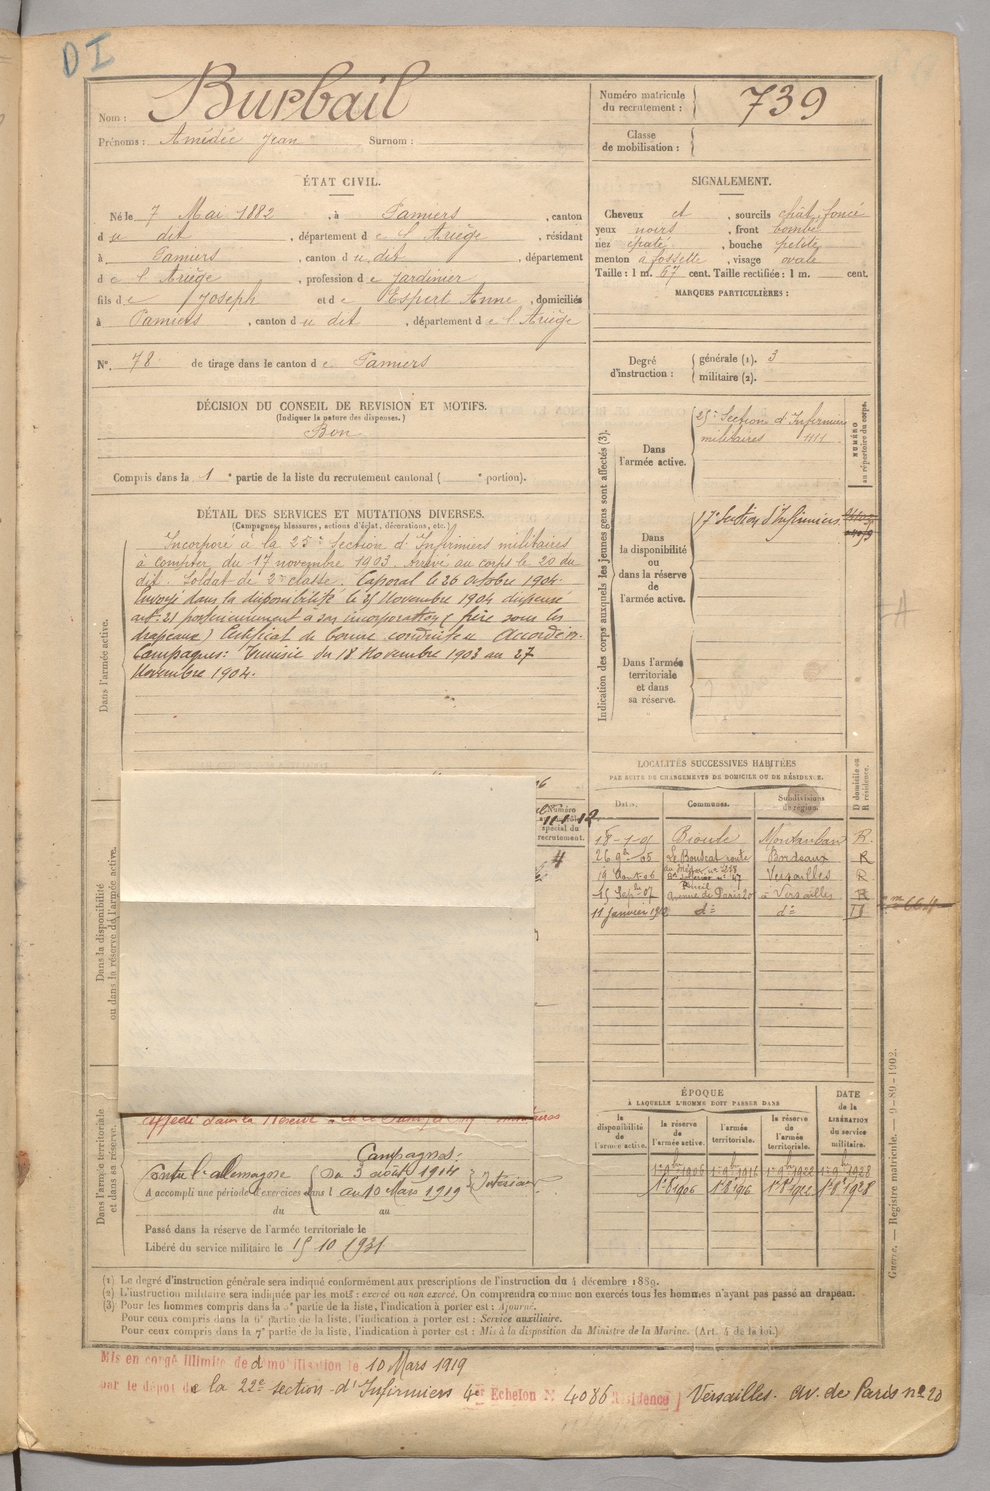 DI
Nom : Burbail
Prénoms : Amédée Jean Surnom :
ÉTAT CIVIL.
Né le 7 Mai 1882, à Pamiers, canton
du dit, département de l'Ariège, résidant
à Pamiers, canton du dit, département
de l'Ariège, profession de Jardinier
fils de Joseph et de Espert Anne, domiciliés
à Pamiers, canton du dit, département de l'Ariège
N°. 78 de tirage dans le canton de Pamiers
DÉCISION DU CONSEIL DE REVISION ET MOTIFS.
(Indiquer la nature des dispenses.)
Bon
Compris dans la 1e partie de la liste du recrutement cantonal ( e portion).
DÉTAIL DES SERVICES ET MUTATIONS DIVERSES.
(Campagnes, blessures, actions d'éclat, décorations, etc.)
Dans l'armée active.
Incorporé à la 25e Section d'Infirmiers militaires
à compter du 17 novembre 1903. Arrivé au corps le 20 du
dit. Soldat de 2e classe. Caporal le 26 octobre 1904.
Envoyé dans la disponibilité le 27 Novembre 1904 dispensé
art. 21 postérieurement à son incorporation (frère sous les
drapeaux) Certificat de bonne conduite Accordé.
Campagnes : Tunisie du 18 Novembre 1903 au 27
Novembre 1904.
Dans la disponibilité
ou dans la réserve de l'armée active.
Numéro
spécial du
recrutement.
4
Dans l'armée territoriale
et dans sa réserve.
Affecté dans la Réserve
Campagnes :
Contre l'Allemagne Du 3 août 1914
A accompli une période d'exercices dans l au 10 Mars 1919 Intérieur
du au
Passé dans la réserve de l'armée territoriale le
Libéré du service militaire le 15 10 1931
Numéro matricule
du recrutement : 739
Classe
de mobilisation :
SIGNALEMENT.
Cheveux et, sourcils chât. foncé
yeux noirs, front bombé
nez épaté, bouche petite
menton à fossette, visage ovale
Taille : 1 m. 67 cent. Taille rectifiée : 1 m. cent.
MARQUES PARTICULIÈRES :
Degré
d'instruction :
générale (1). 3
militaire (2).
Indication des corps auxquels les jeunes gens sont affectés (3).
NUMÉRO
au répertoire du corps.
Dans
l'armée active.
25e Section d'Infirmiers
militaires 1111
Dans
la disponibilité
ou
dans la réserve
de
l'armée active.
17e Section d'Infirmiers
Dans l'armée
territoriale
et dans
sa réserve.
LOCALITÉS SUCCESSIVES HABITÉES
PAR SUITE DE CHANGEMENTS DE DOMICILE OU DE RÉSIDENCE.
Dates. Communes. Subdivisions de région. D domicile ou R résidence.
18-1-05 Bioule Montauban R.
26 9bre 05 Le Bouscat route du Médoc n° 258 Bordeaux R
19 Août 06 Versailles R
15 Sepbre 07 Rueil Avenue de Paris 20 à Versailles R
11 janvier 1912 d° d°
ÉPOQUE
À LAQUELLE L'HOMME DOIT PASSER DANS
DATE
de la
LIBÉRATION
du service
militaire.
la
disponibilité
de
l'armée active.
la réserve
de
l'armée active.
l'armée
territoriale.
la réserve
de
l'armée
territoriale.
1er 9bre 1906 1er 9bre 1916 1er 9bre 1922 1er 9bre 1928
1er 8bre 1906 1er 8bre 1916 1er 8bre 1922 1er 8bre 1928
Guerre. — Registre matricule. — 9-89-1902.
(1) Le degré d'instruction générale sera indiqué conformément aux prescriptions de l'instruction du 4 décembre 1889.
(2) L'instruction militaire sera indiquée par les mots : exercé ou non exercé. On comprendra comme non exercés tous les hommes n'ayant pas passé au drapeau.
(3) Pour les hommes compris dans la 5e partie de la liste, l'indication à porter est : Ajourné.
Pour ceux compris dans la 6e partie de la liste, l'indication à porter est : Service auxiliaire.
Pour ceux compris dans la 7e partie de la liste, l'indication à porter est : Mis à la disposition du Ministre de la Marine. (Art. 4 de la loi.)
Mis en congé illimité de démobilisation le 10 Mars 1919
par le dépôt de la 22e section d'Infirmiers 4e Echelon N° 4086 Résidence Versailles. Av. de Paris n° 20